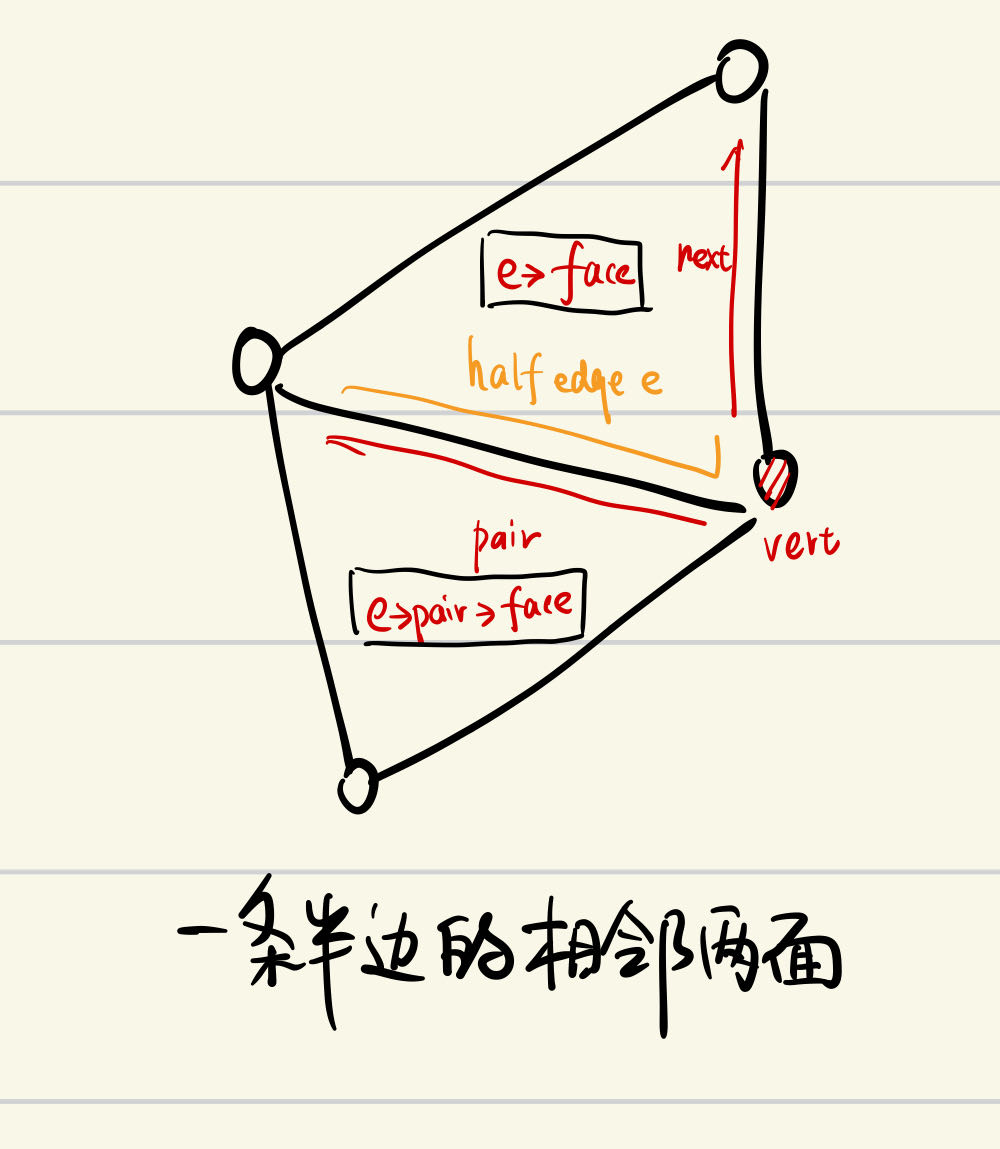 e→face
next
half edge e
pair
vert
e→pair→face
一条半边的相邻两面